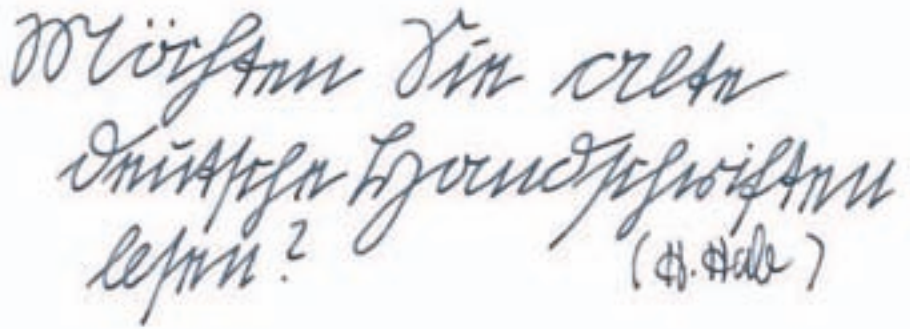 Möchten Sie alte
deutsche Handschriften
lesen?